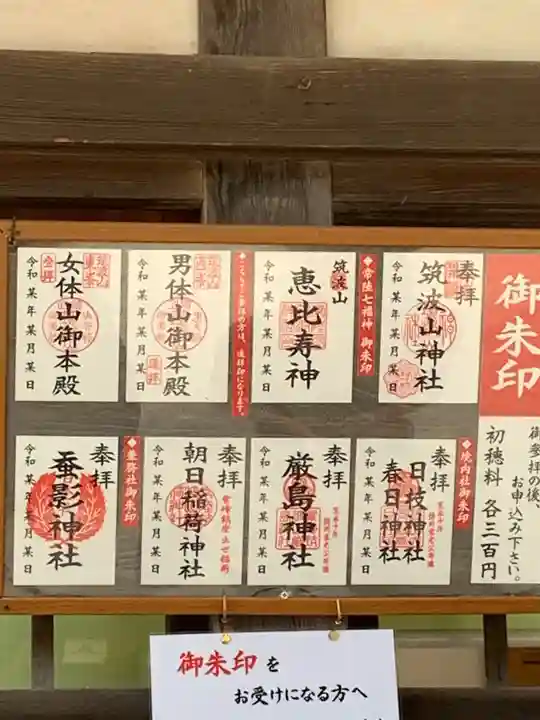 御朱印
御参拝の後、
お申込み下さい。
初穂料 各三百円
奉拝
筑波山神社
令和 某年 某月 某日
◆常陸七福神 御朱印
筑波山
恵比寿神
令和 某年 某月 某日
男体山御本殿
令和 某年 某月 某日
遥拝
女体山御本殿
令和 某年 某月 某日
◆境内社御朱印
奉拝
日枝神社
春日神社
令和 某年 某月 某日
奉拝
厳島神社
令和 某年 某月 某日
奉拝
朝日稲荷神社
令和 某年 某月 某日
◆兼務社御朱印
奉拝
蚕影神社
令和 某年 某月 某日
御朱印を
お受けになる方へ